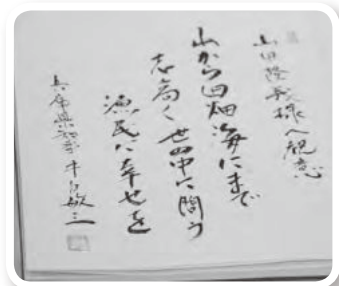 山田隆義様へ祝意
山から田畑海にまで
志高く世の中に問う
漁民に幸せを
兵庫県知事 井戸敏三